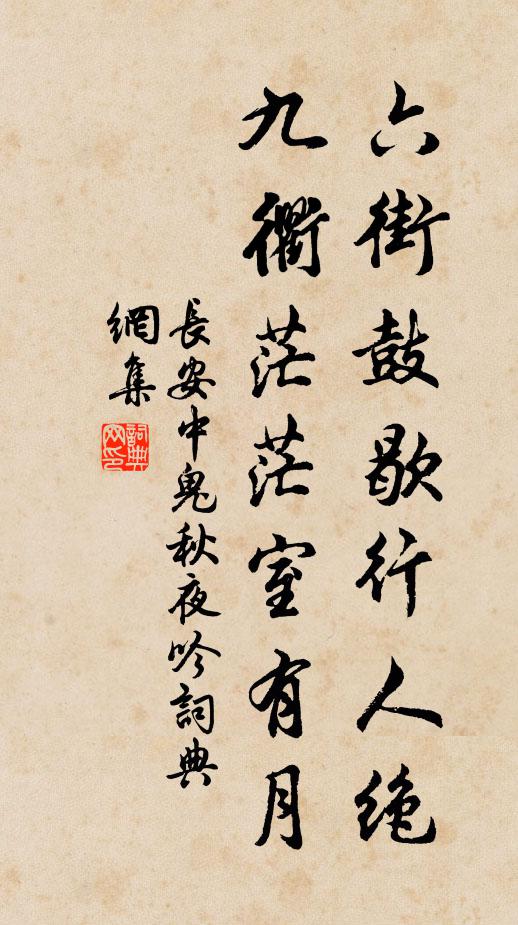 六街鼓歇行人绝
九衢茫茫室有月
長安中鬼秋夜吟詞典
網集
詞典
网印